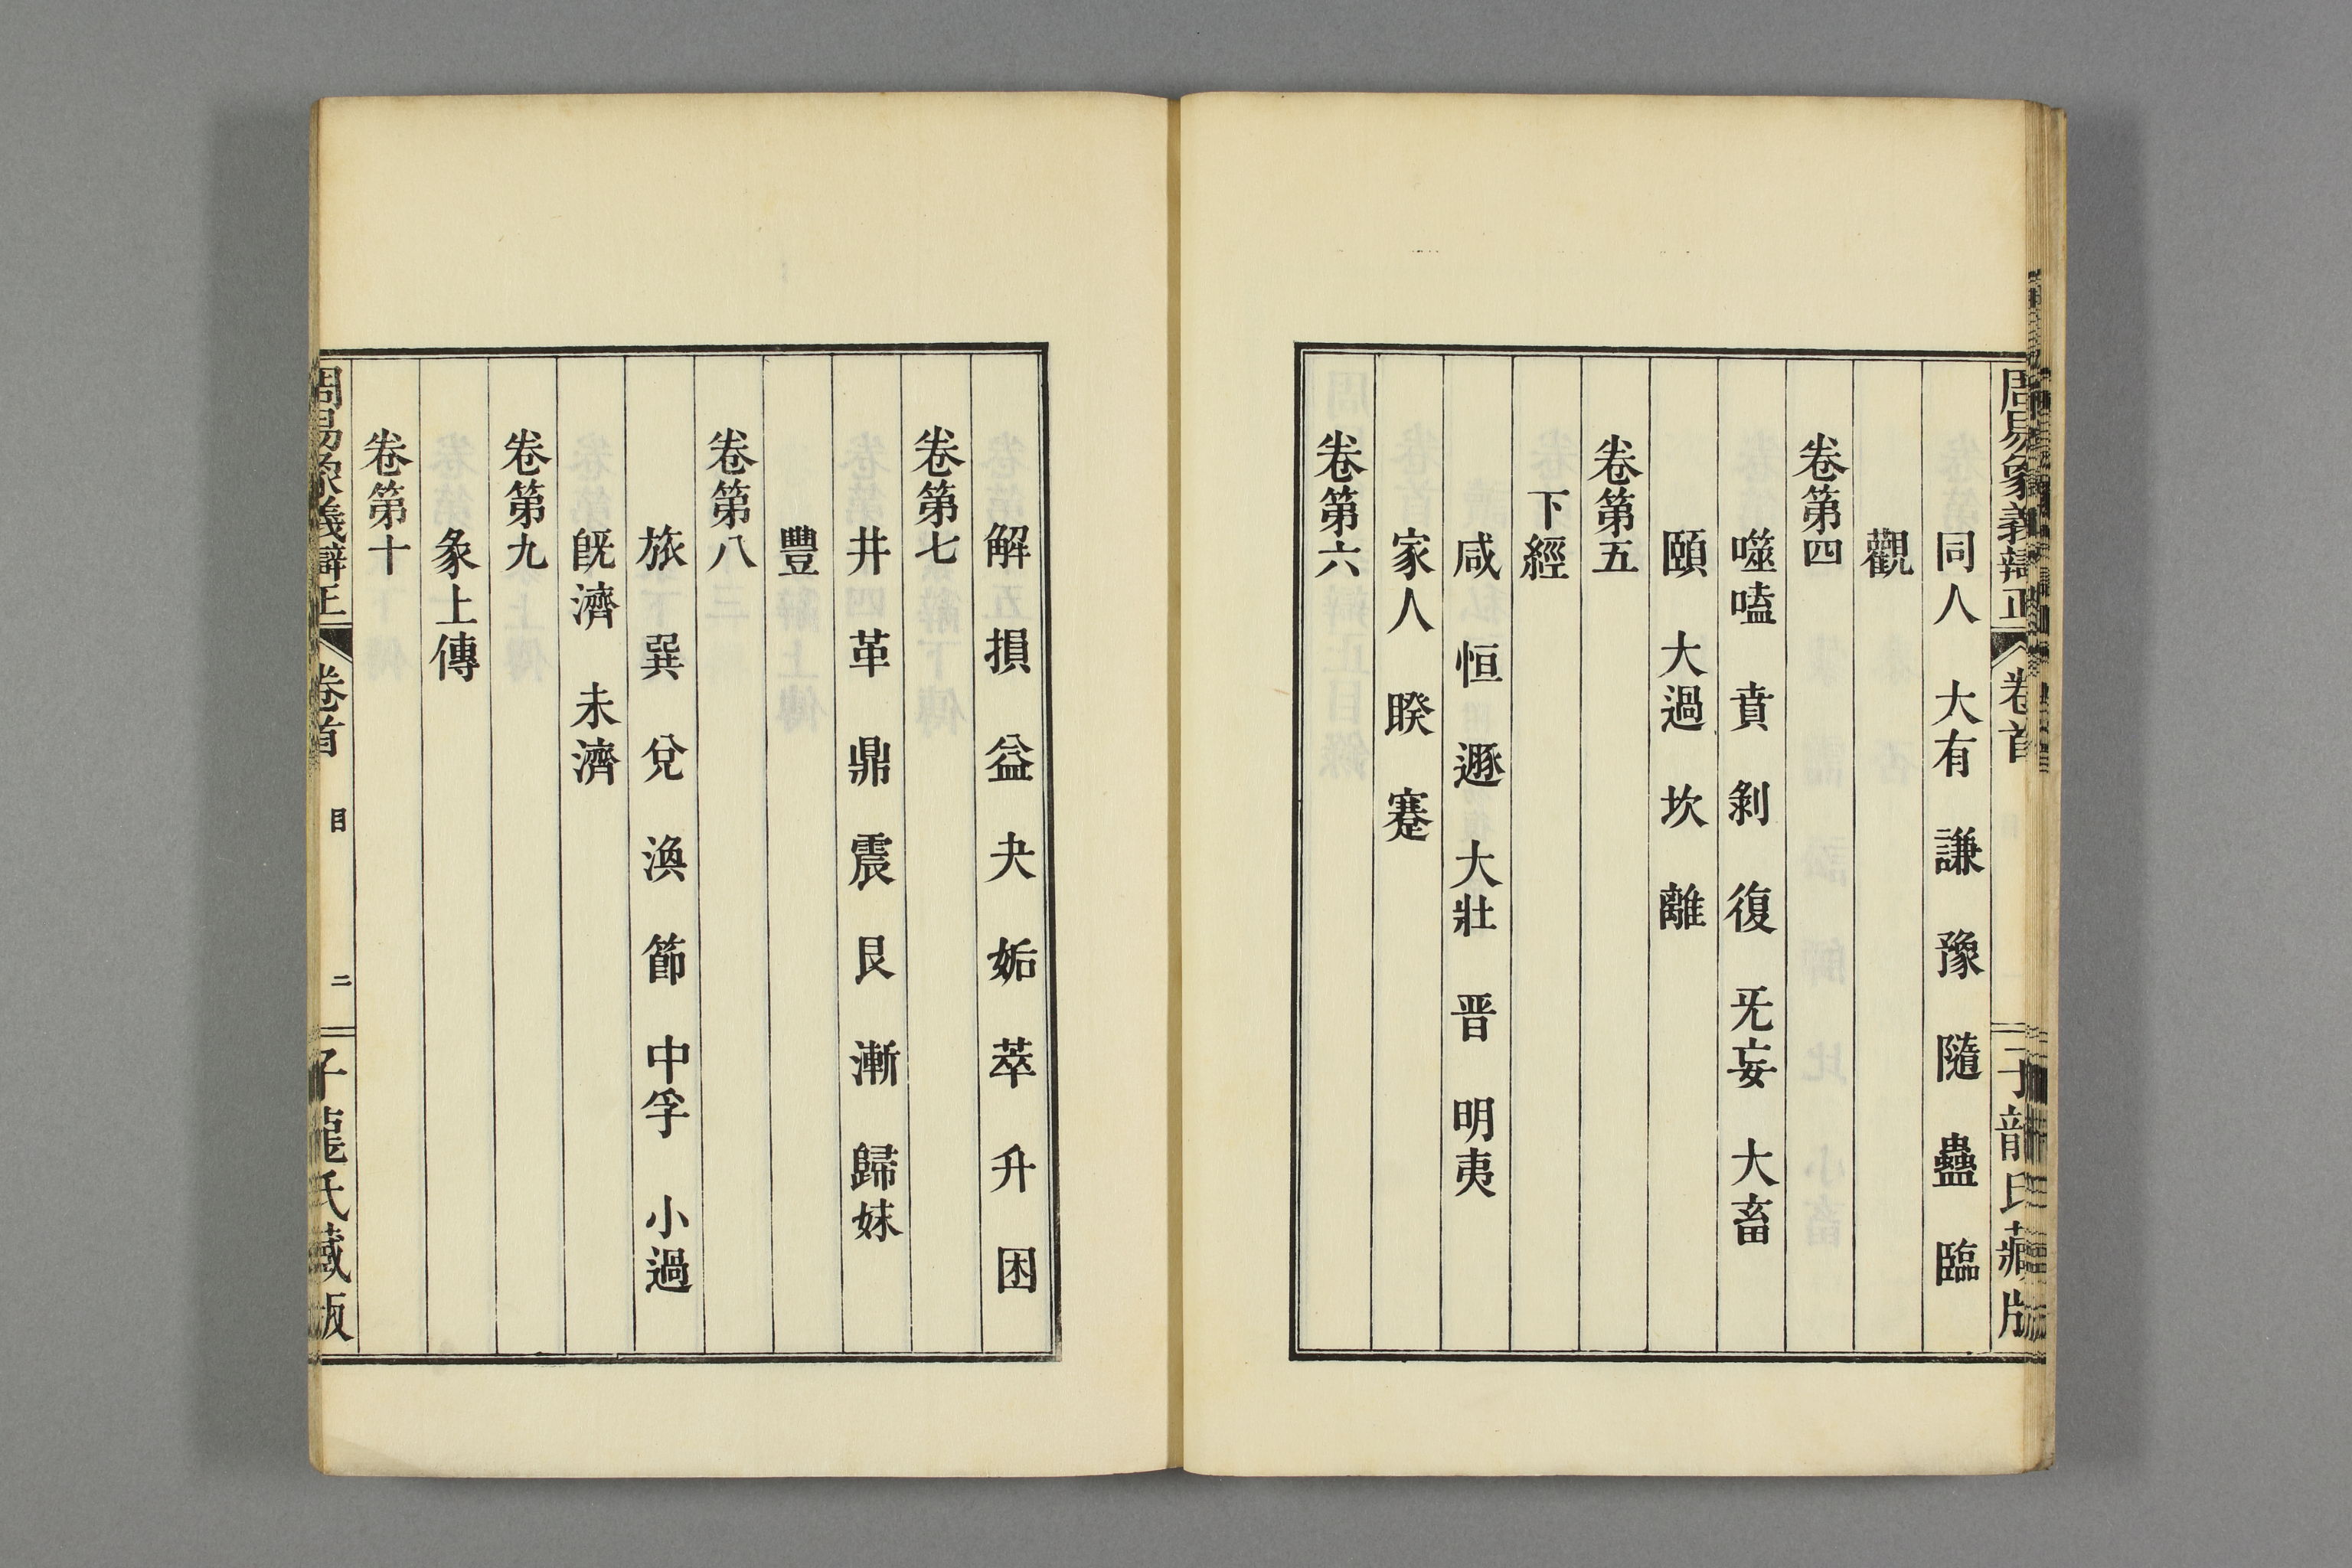 周易象義辯正 卷首 子龍氏藏版
同人 大有 謙 豫 隨 蠱 臨
觀
卷第四
噬嗑 賁 剝 復 旡妄 大畜
頤 大過 坎 離
卷第五
下經
咸 恒 遯 大壯 晋 明夷
家人 睽 蹇
卷第六
解 損 益 夬 姤 萃 升 困
卷第七
井 革 鼎 震 艮 漸 歸妹
豐
卷第八
旅 巽 兌 渙 節 中孚 小過
旣濟 未濟
卷第九
彖上傳
卷第十
周易象義辯正 卷首 目 二 子龍氏藏版